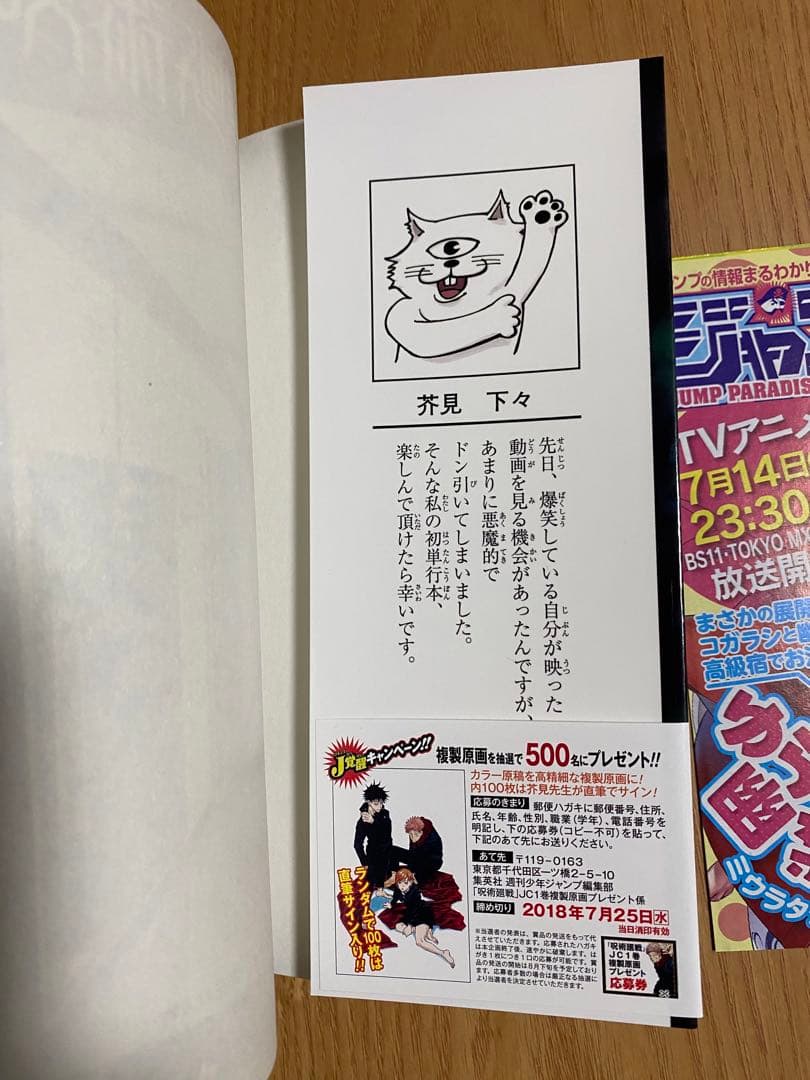 芥見 下々
先日、爆笑している自分が映った
動画を見る機会があったんですが、
あまりに悪魔的で
ドン引いてしまいました。
そんな私の初単行本、
楽しんで頂けたら幸いです。
J覚醒キャンペーン!!
複製原画を抽選で500名にプレゼント!!
カラー原稿を高精細な複製原画に!
内100枚は芥見先生が直筆でサイン!
応募のきまり 郵便ハガキに郵便番号、住所、
氏名、年齢、性別、職業(学年)、電話番号を
明記し、下の応募券(コピー不可)を貼って、
下記のあて先にお送りください。
あて先 〒119-0163
東京都千代田区一ツ橋2-5-10
集英社 週刊少年ジャンプ編集部
「呪術廻戦」JC1巻複製原画プレゼント係
締め切り 2018年7月25日水
当日消印有効
ランダムで100枚は
直筆サイン入り!!
※当選者の発表は、賞品の発送をもって代
えさせていただきます。応募されたハガキ
は本企画終了後、速やかに破棄します。は
がき1枚につき1口の応募が可能です。賞
品の発送の開始は8月下旬を予定しており
ます。応募者多数の場合は厳正なる抽選に
より当選者を決定させていただきます。
「呪術廻戦」
JC1巻
複製原画
プレゼント
応募券
ンプの情報まるわかり
ジャン
JUMP PARADIS
TVアニメ
7月14日
23:30
BS11・TOKYO MX
放送開
まさかの展開
コガラシと
高級宿でお
ミウラタ